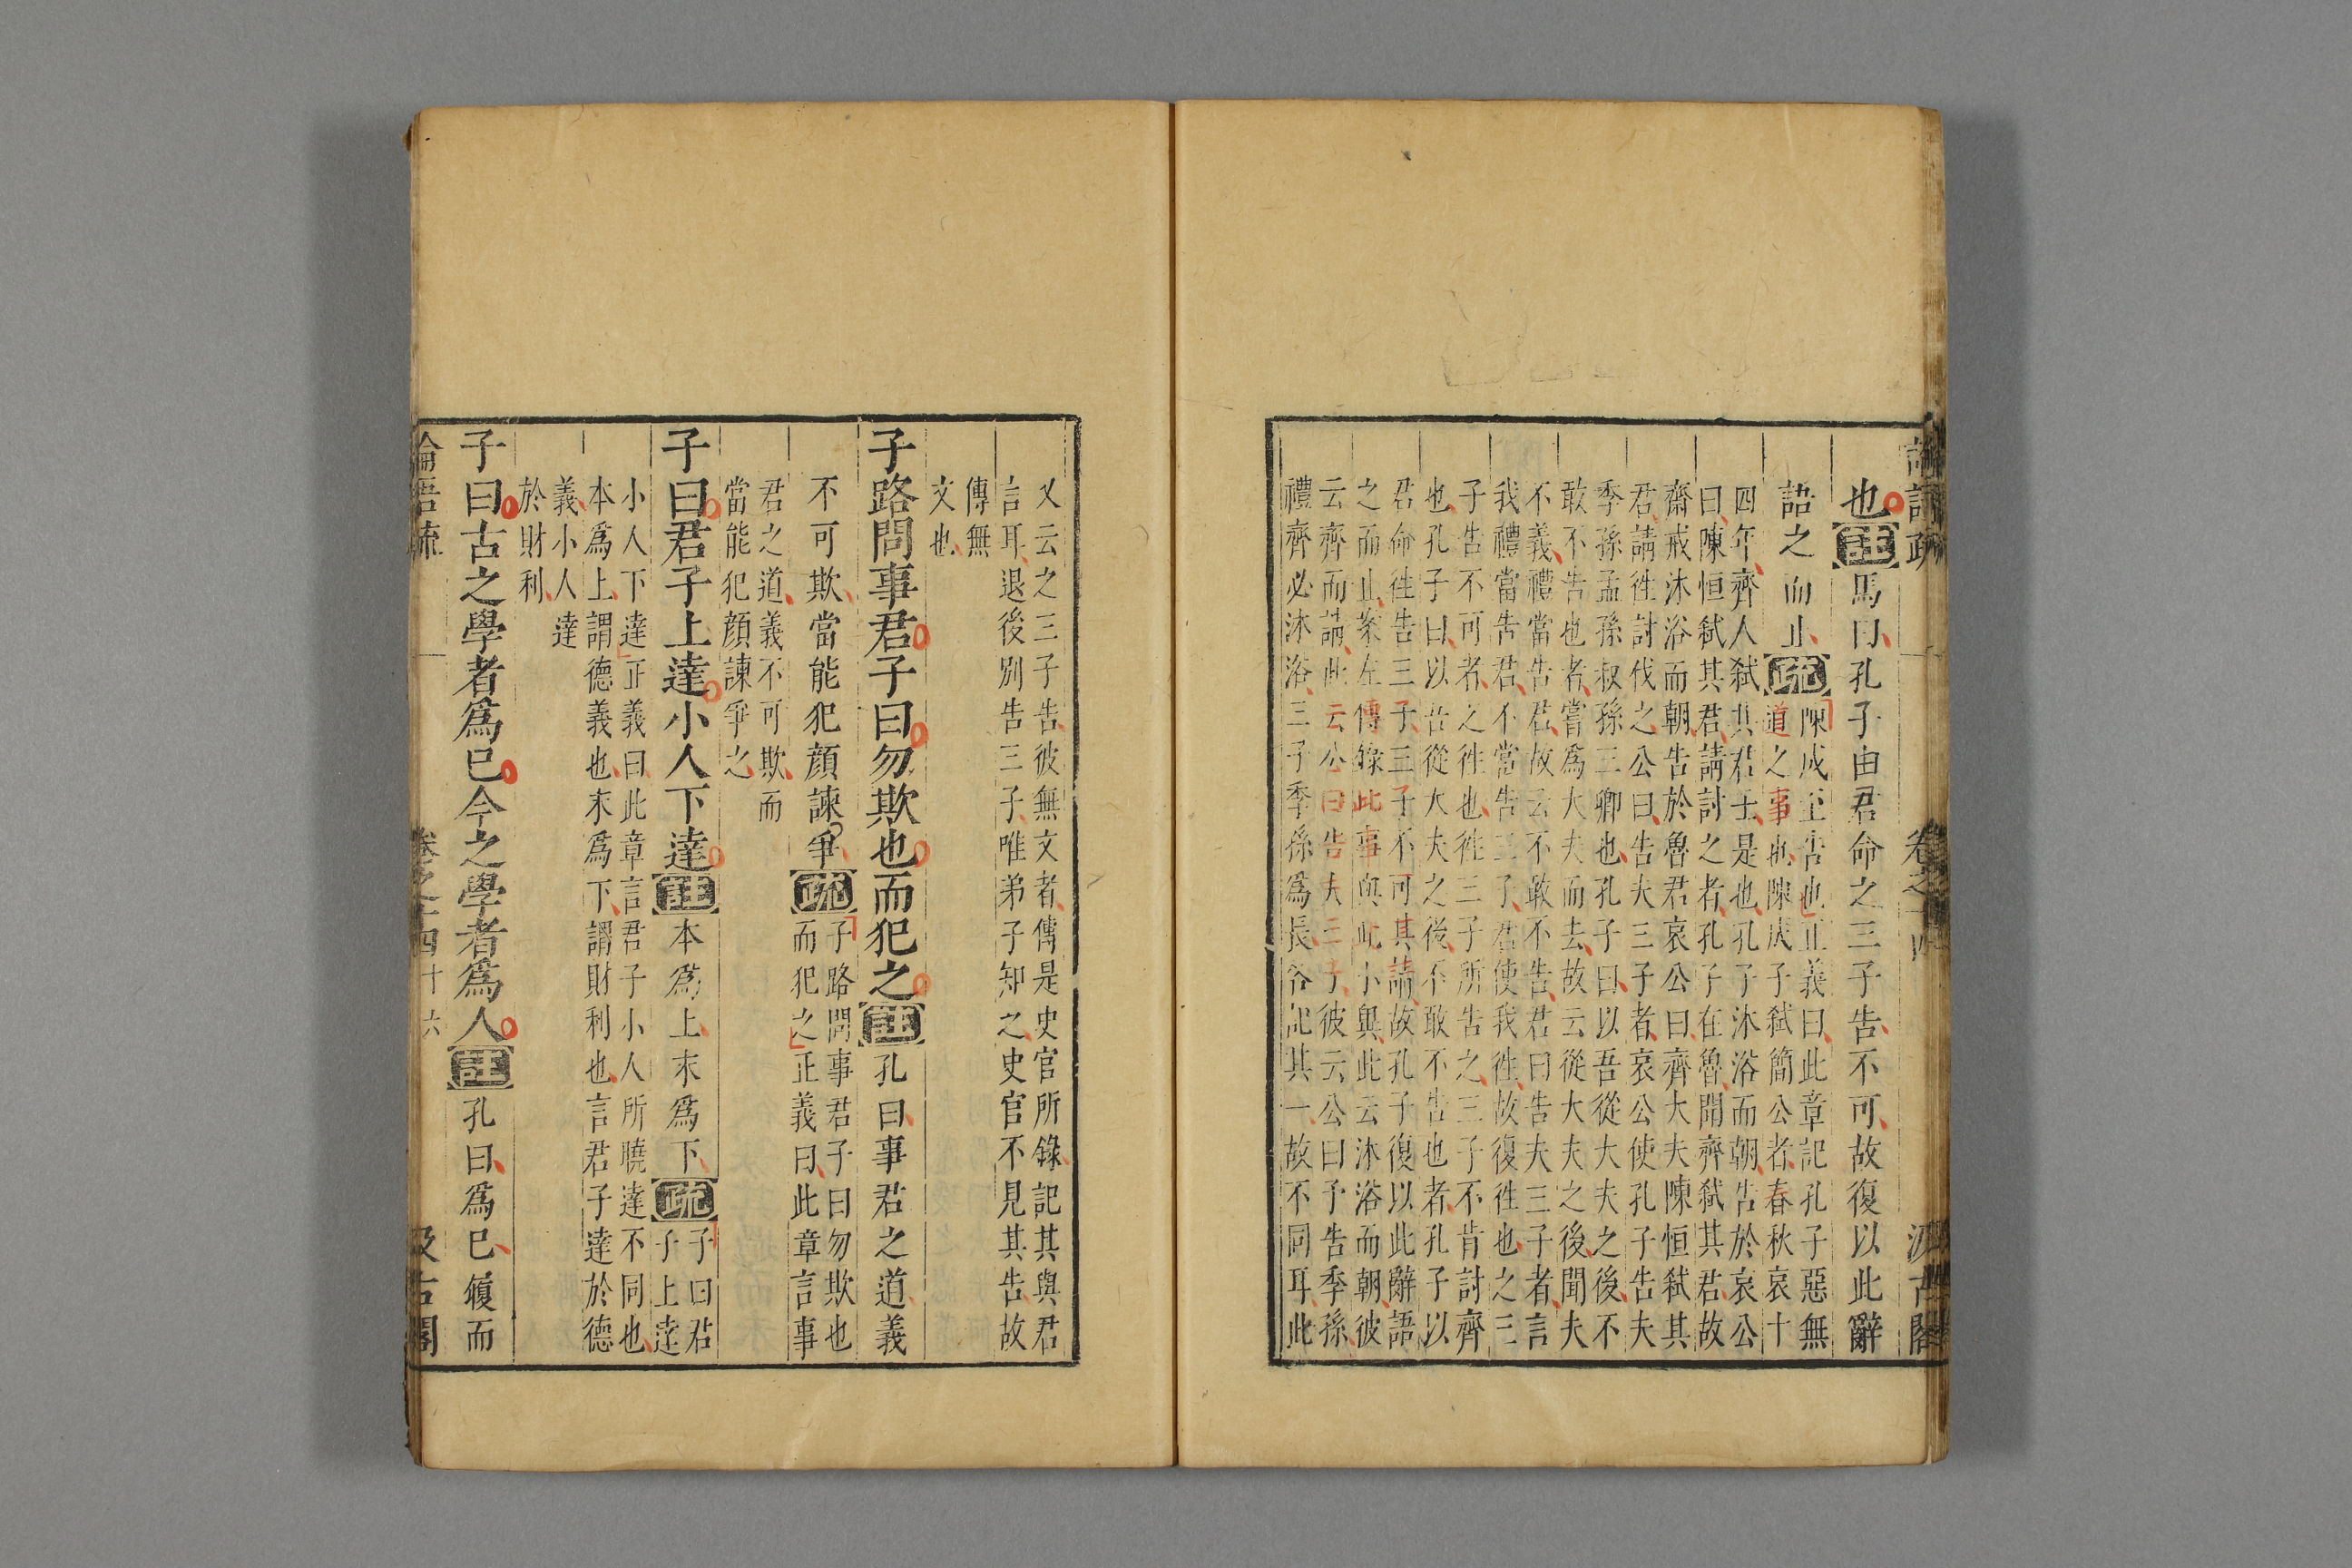 語疏 卷之十四 汲古閣
也註馬曰孔子由君命之三子告不可故復以此辭
語之而止疏陳成至告也正義曰此章記孔子惡無
道之事也陳成子弑簡公者春秋哀十
四年齊人弑其君壬是也孔子沐浴而朝告於哀公
曰陳恒弑其君請討之者孔子在魯聞齊弑其君故
齋戒沐浴而朝告於魯君哀公曰齊大夫陳恒弑其
君請徃討伐之公曰告夫三子者哀公使孔子告夫
季孫孟孫叔孫三卿也孔子曰以吾從大夫之後不
敢不告也者嘗爲大夫而去故云從大夫之後聞夫
不義禮當告君故云不敢不告君曰告夫三子者言
我禮當告君不當告三子君使我徃故復徃也之三
子告不可者之徃也徃三子所告之三子不肯討齊
也孔子曰以吾從大夫之後不敢不告也者孔子以
君命徃告三子三子不可其請故孔子復以此辭語
之而止案左傳錄此事與此小異此云沐浴而朝彼
云齊而請此云公曰告夫三子彼云公曰子告季孫
禮齊必沐浴三子季孫爲長各記其一故不同耳此
又云之三子告彼無文者傳是史官所錄記其與君
言耳退後別告三子唯弟子知之史官不見其告故
傳無
文也
子路問事君子曰勿欺也而犯之註孔曰事君之道義
不可欺當能犯顔諫爭疏子路問事君子曰勿欺也
而犯之正義曰此章言事
君之道義不可欺而
當能犯顔諫爭之
子曰君子上達小人下達註本爲上末爲下疏子曰君
子上達
小人下達正義曰此章言君子小人所曉達不同也
本爲上謂德義也末爲下謂財利也言君子達於德
義小人達
於財利
子曰古之學者爲已今之學者爲人註孔曰爲已履而
論語疏 卷之十四 十六 汲古閣